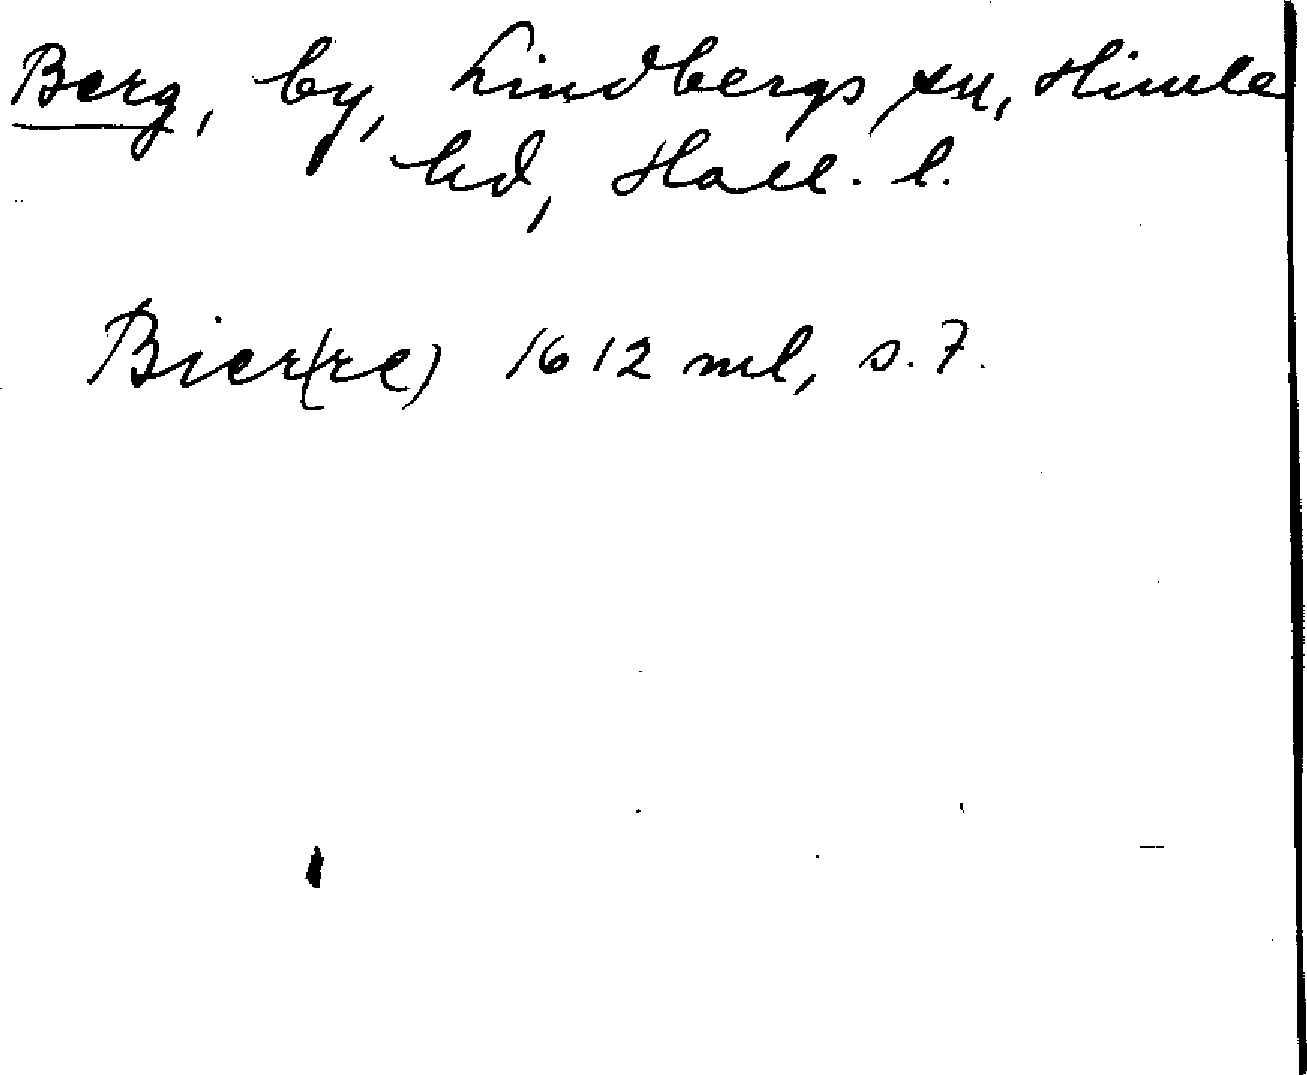 Berg, by, Lindbergs sn, Himle
hd, Hall. l.
Bier(re) 1612 ml, s. 7.